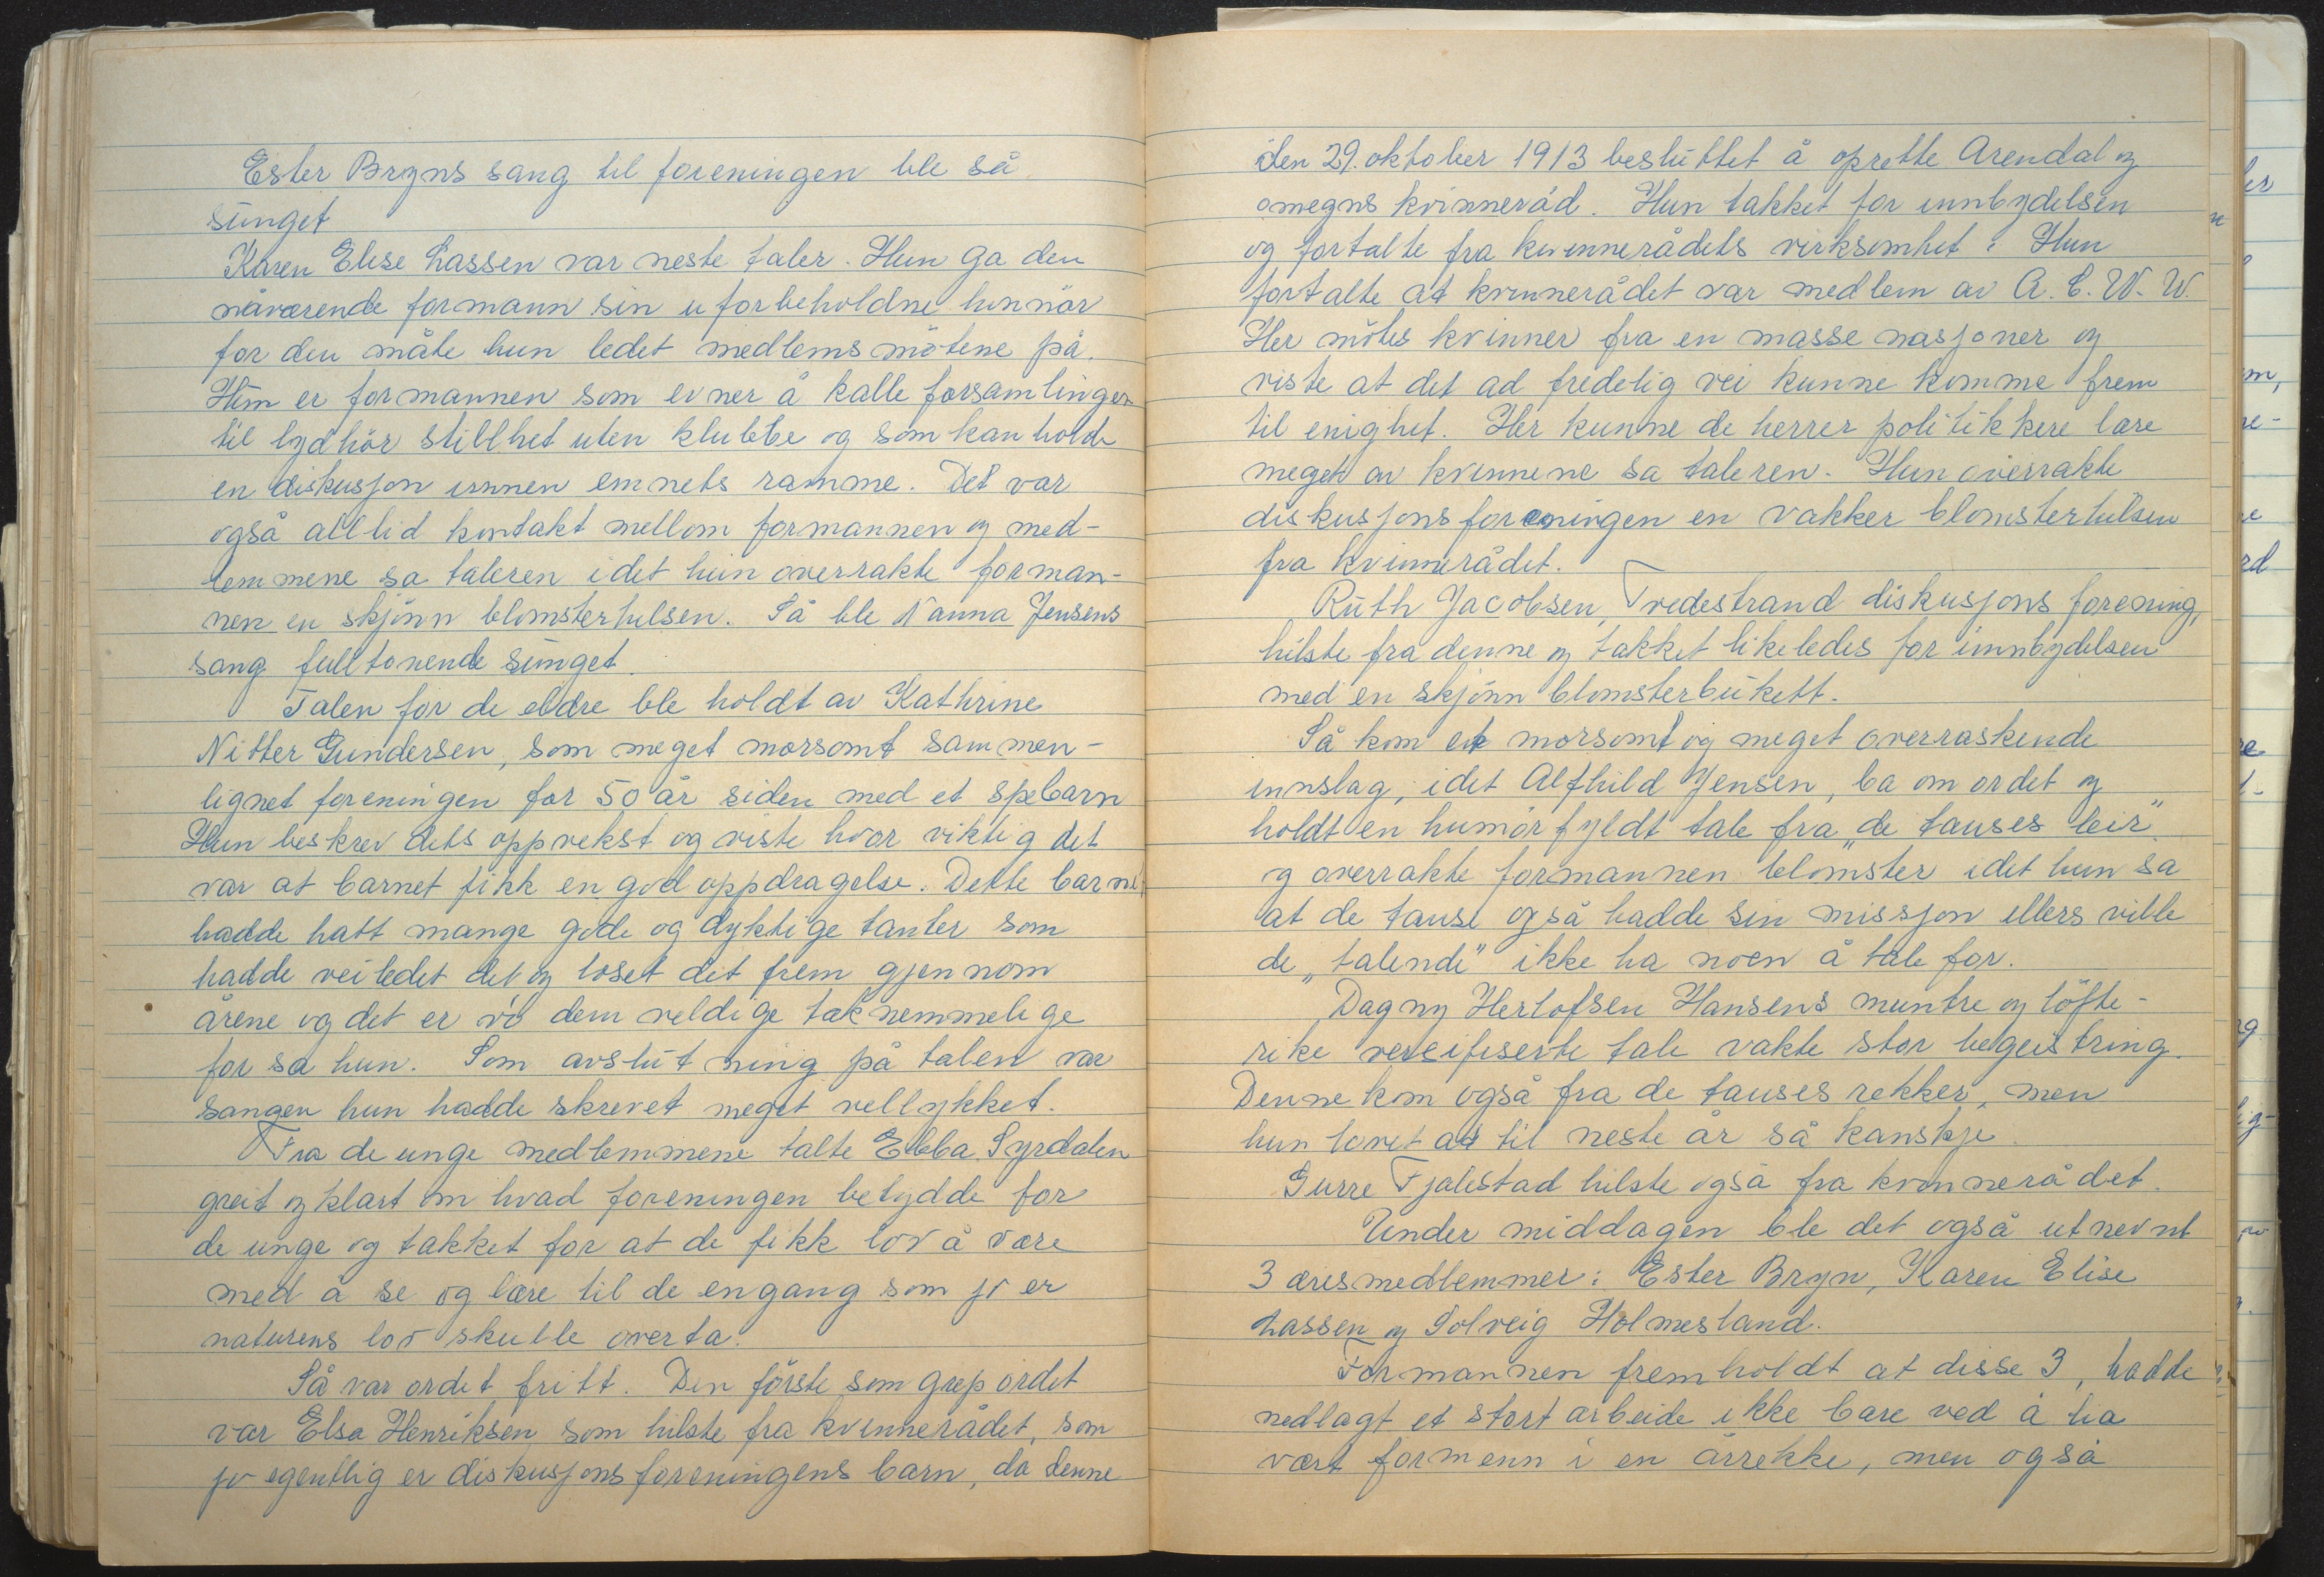 Ester Bryns sang til foreningen ble så
sunget
Karen Elise Lassen var neste taler. Hun ga den
nåværende formann sin uforbeholdne honnör
for den måte hun ledet medlemsmötene på.
Hun er formannen som evner å kalle forsamlingen
til lydhör stillhet uten klubbe og som kan holde
en diskusjon innen emnets ramme. Det var
også alltid kontakt mellom formannen og med-
lemmene sa taleren idet hun overrakte forman-
nen en skjönn blomsterhilsen. Så ble Nanna Jensens
sang fulltonende sunget.
Talen for de eldre ble holdt av Kathrine
Nitter Gundersen, som meget morsomt sammen-
lignet foreningen for 50 år siden med et spebarn
Hun beskrev dets oppvekst og viste hvor viktig det
var at barnet fikk en god oppdragelse. Dette barnet
hadde hatt mange gode og dyktige tanter som
hadde veiledet det og loset det frem gjennom
årene og det er vi dem veldige taknemmelige
for sa hun. Som avslutning på talen var
sangen hun hadde skrevet meget vellykket.
Fra de unge medlemmene talte Ebba Syrdalen
greit og klart om hvad foreningen betydde for
de unge og takket for at de fikk lov å være
med å se og lære til de engang som jo er
naturens lov skulle overta.
Så var ordet fritt. Den förste som grep ordet
var Elsa Henriksen som hilste fra kvinnerådet, som
jo egentlig er diskusjonsforeningens barn, da denne
den 29. oktober 1913 besluttet å oprette Arendal og
omegns kvinneråd. Hun takket for innbydelsen
og fortalte fra kvinnerådets virksomhet. Hun
fortalte at kvinnerådet var medlem av A. C. W. W.
Her mötes kvinner fra en masse nasjoner og
viste at det ad fredelig vei kunne komme frem
til enighet. Her kunne de herrer politikkere lære
meget av kvinnene sa taleren. Hun overrakte
diskusjonsforeningen en vakker blomsterhilsen
fra kvinnerådet.
Ruth Jacobsen, Tvedestrand diskusjonsforening,
hilste fra denne og takket likeledes for innbydelsen
med en skjönn blomsterbukett.
Så kom et morsomt og meget overraskende
innslag, idet Alfhild Jensen, ba om ordet og
holdt en humörfyldt tale fra „de tauses leir"
og overrakte formannen blomster idet hun sa
at de tause også hadde sin missjon ellers ville
de „talende" ikke ha noen å tale for.
Dagny Herlofsen Hansens muntre og löfte-
rike versifiserte tale vakte stor begeistring.
Denne kom også fra de tauses rekker, men
hun lovet at til neste år så kanskje.
Gurre Fjalestad hilste også fra kvinnerådet.
Under middagen ble det også utnevnt
3 æresmedlemmer: Ester Bryn, Karen Elise
Lassen og Solveig Holmesland.
Formannen fremholdt at disse 3, hadde
nedlagt et stort arbeide ikke bare ved å ha
vært formenn i en årrekke, men også